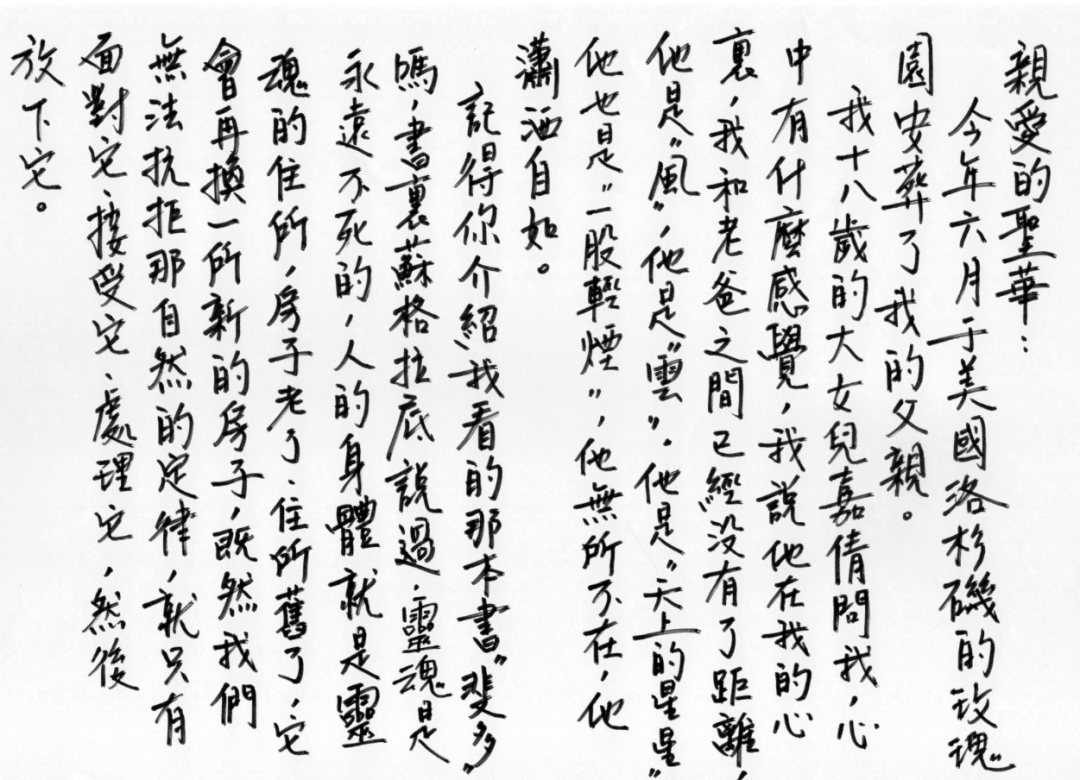 親愛的聖華：
今年六月于美國洛杉磯的玫瑰
園安葬了我的父親。
我十八歲的大女兒嘉倩問我，心
中有什麼感覺，我說他在我的心
裏，我和老爸之間已經没有了距離，
他是"風"，他是"雲"．他是"天上的星星"
他也是"一股輕煙"，他無所不在，他
瀟洒自如。
記得你介紹我看的那本書"斐多"
嗎，書裏蘇格拉底說過．靈魂是
永遠不死的，人的身體就是靈
魂的住所，房子老了、住所舊了，它
會再換一所新的房子，既然我們
無法抗拒那自然的定律，就只有
面對它、接受它、處理它，然後
放下它。